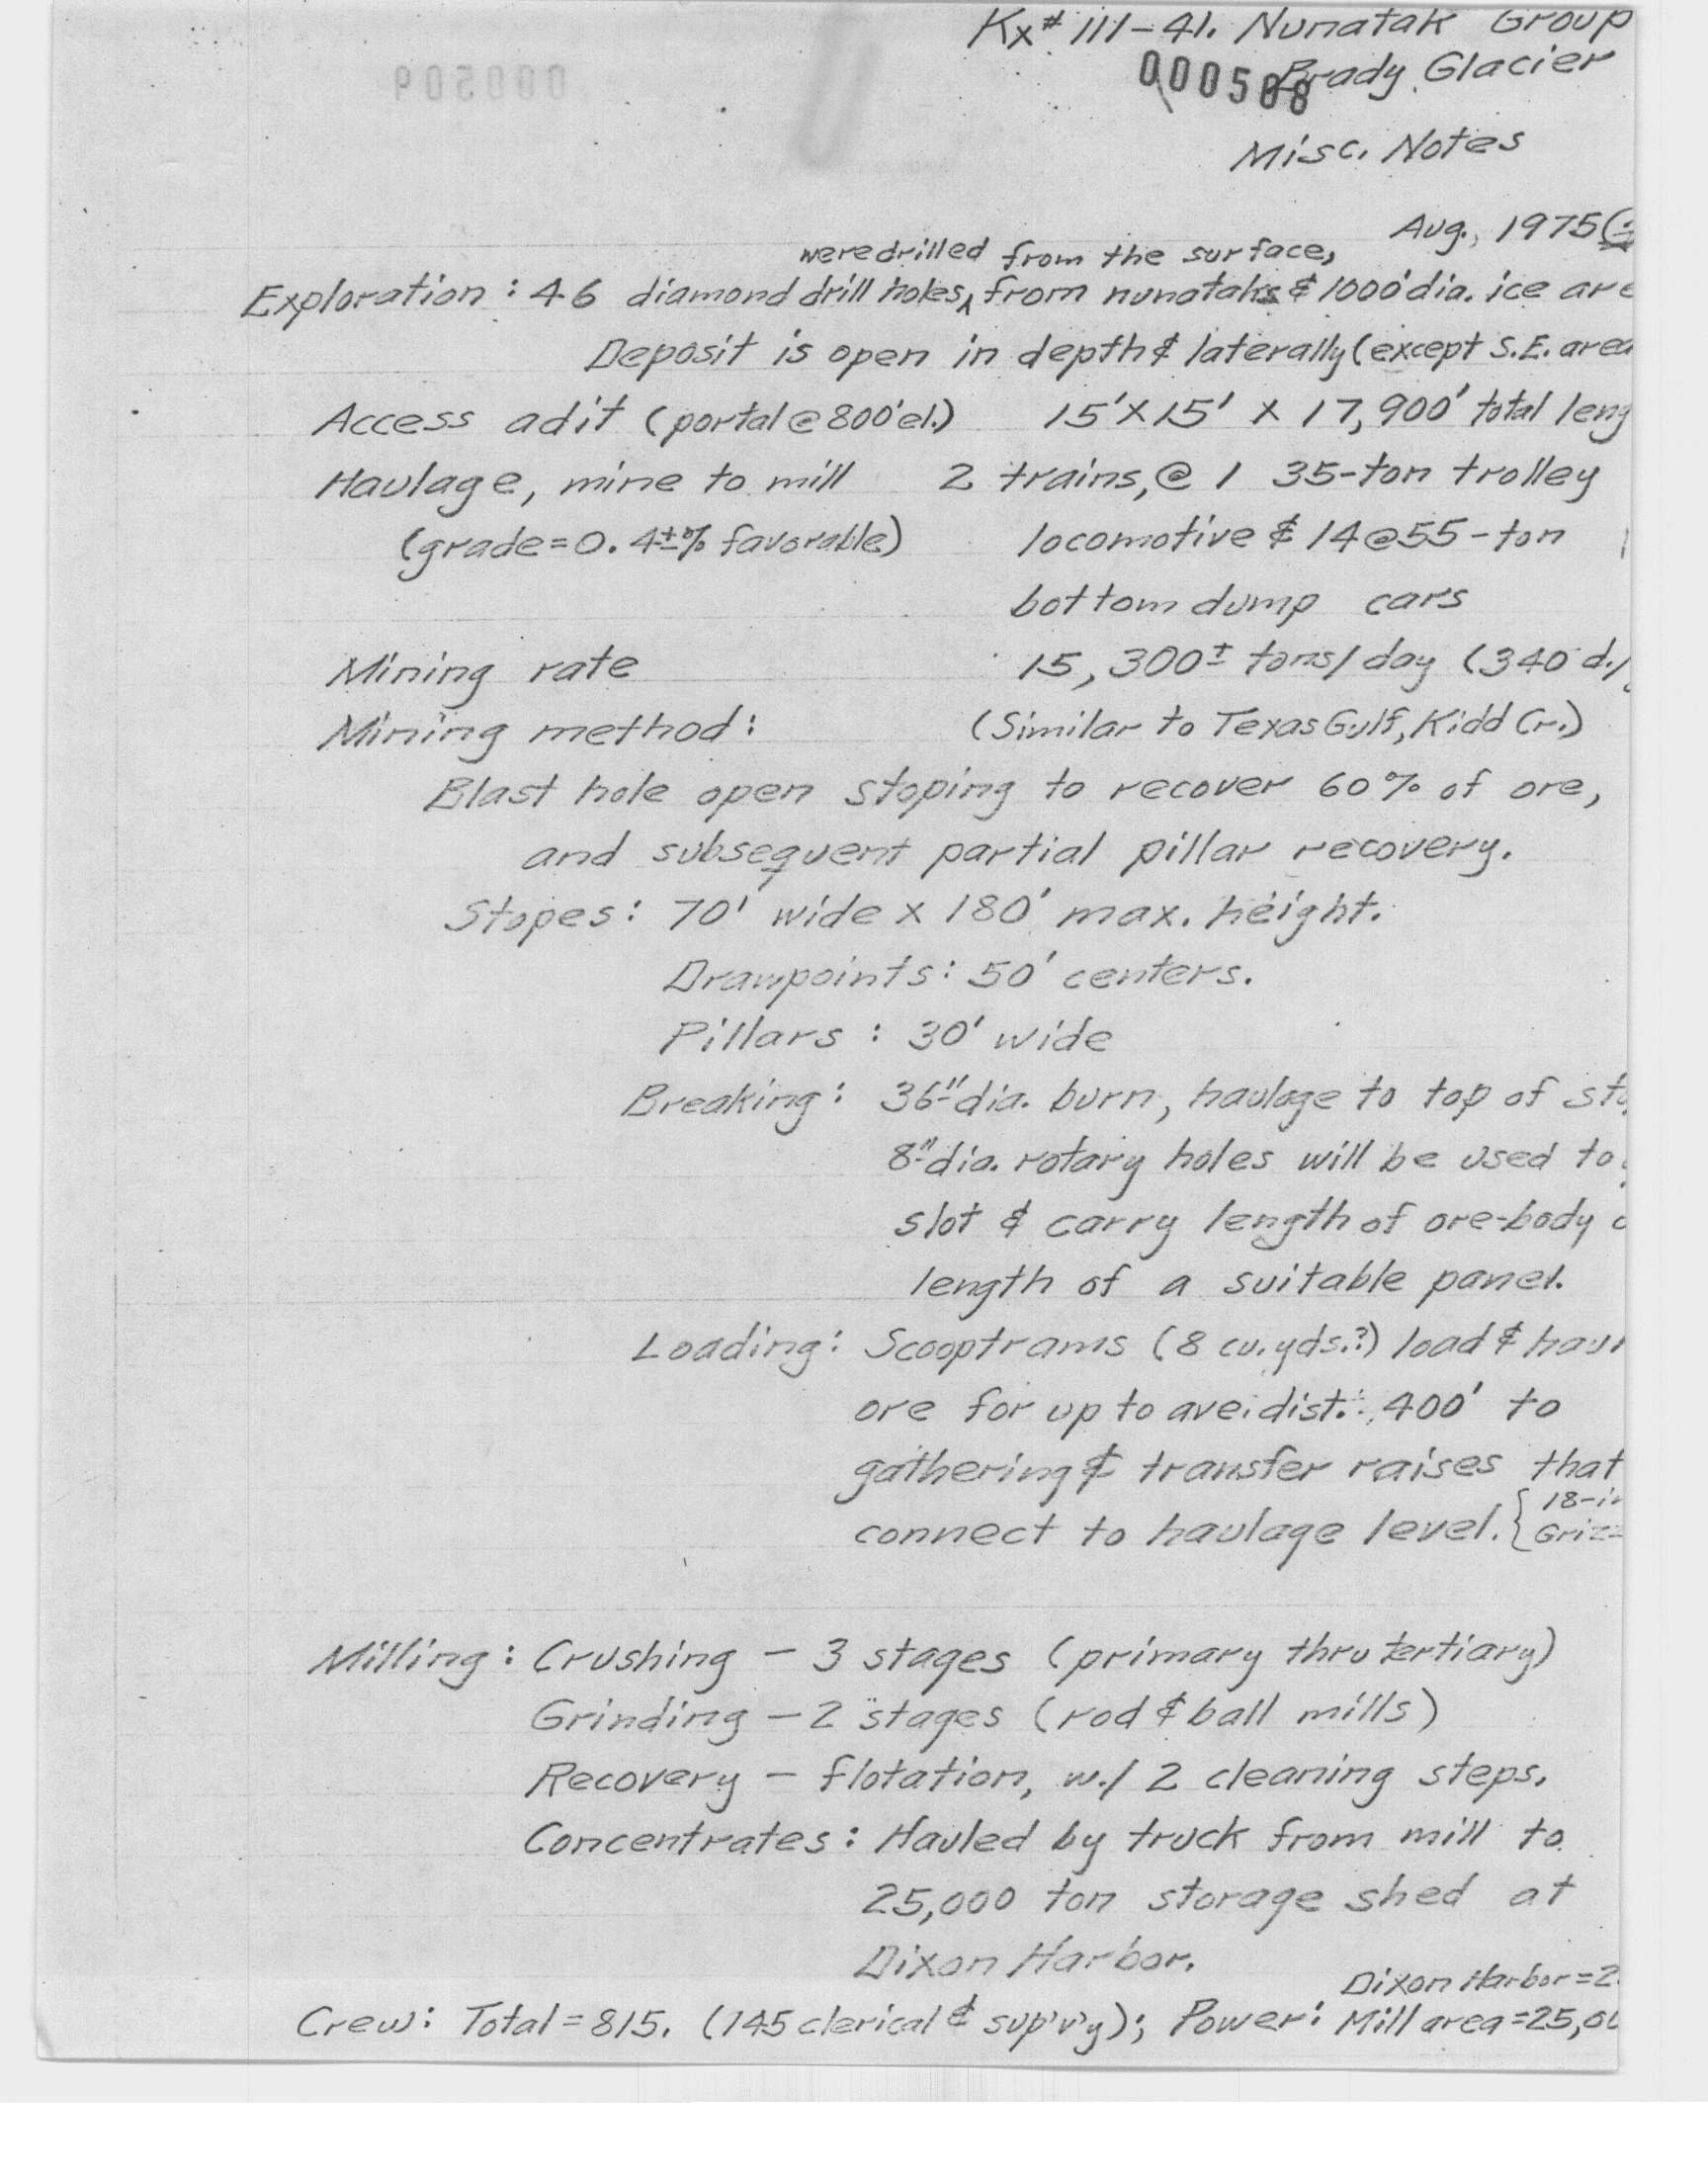 Kx# 111-41. Nunatak Group
000508 Brady Glacier
Misc. Notes
Aug., 1975
were drilled from the surface,
Exploration: 46 diamond drill holes, from nunataks & 1000' dia. ice
Deposit is open in depth & laterally (except S.E. area
Access adit (portal @ 800' el.) 15' X 15' X 17,900' total leng
Haulage, mine to mill 2 trains, @ 1 35-ton trolley
(grade = 0.4±% favorable) locomotive & 14 @ 55-ton
bottom dump cars
Mining rate 15,300± tons/day (340 d./
Mining method: (Similar to Texas Gulf, Kidd Cr.)
Blast hole open stoping to recover 60% of ore,
and subsequent partial pillar recovery.
Stopes: 70' wide x 180' max. height.
Drawpoints: 50' centers.
Pillars: 30' wide
Breaking: 36" dia. burn, haulage to top of
8" dia. rotary holes will be used to
slot & carry length of ore-body
length of a suitable panel.
Loading: Scooptrams (8 cu. yds.?) load & haul
ore for up to ave. dist. 400' to
gathering & transfer raises that
connect to haulage level. { 18-in
Griz
Milling: Crushing - 3 stages (primary thru tertiary)
Grinding - 2 stages (rod & ball mills)
Recovery - flotation, w./ 2 cleaning steps.
Concentrates: Hauled by truck from mill to
25,000 ton storage shed at
Dixon Harbor.
Dixon Harbor = 2
Crew: Total = 815. (145 clerical & sup'v'y); Power: Mill area = 25,0